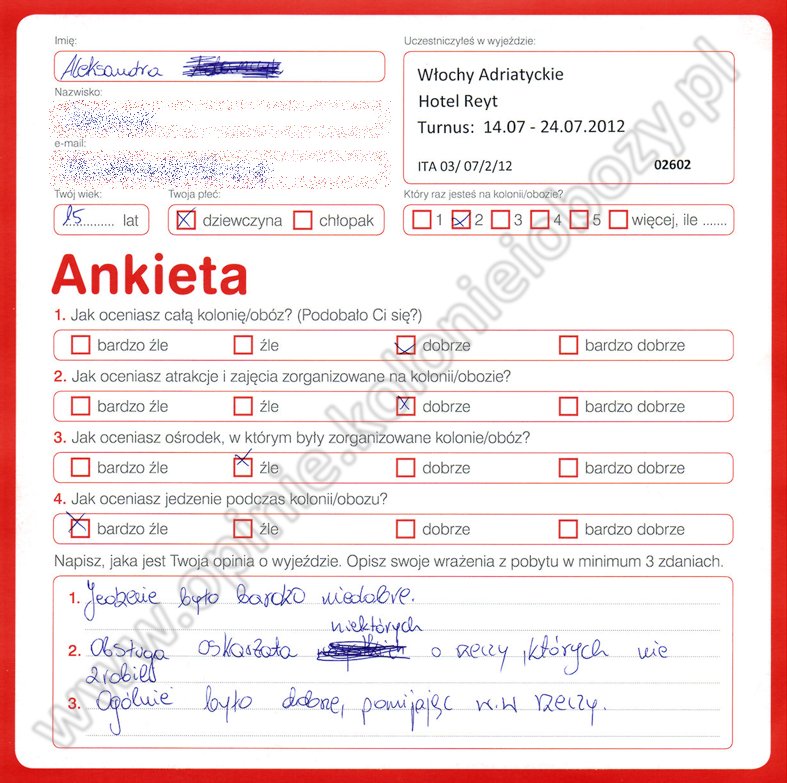 Imię:
Aleksandra
Uczestniczyłeś w wyjeździe:
Włochy Adriatyckie
Hotel Reyt
Turnus: 14.07 - 24.07.2012
ITA 03/ 07/2/12 02602
Nazwisko:
e-mail:
Twój wiek:
15 lat
Twoja płeć:
dziewczyna chłopak
Który raz jesteś na kolonii/obozie?
1 2 3 4 5 więcej, ile .......
Ankieta
1. Jak oceniasz całą kolonię/obóz? (Podobało Ci się?)
bardzo źle źle dobrze bardzo dobrze
2. Jak oceniasz atrakcje i zajęcia zorganizowane na kolonii/obozie?
bardzo źle źle dobrze bardzo dobrze
3. Jak oceniasz ośrodek, w którym były zorganizowane kolonie/obóz?
bardzo źle źle dobrze bardzo dobrze
4. Jak oceniasz jedzenie podczas kolonii/obozu?
bardzo źle źle dobrze bardzo dobrze
Napisz, jaka jest Twoja opinia o wyjeździe. Opisz swoje wrażenia z pobytu w minimum 3 zdaniach.
1. Jedzenie było bardzo niedobre.
niektórych
2. Obsługa oskarżała o rzeczy, których nie
zrobili
3. Ogólnie było dobrze, pomijając w.w rzeczy.
www.opinie.kolonieiobozy.pl